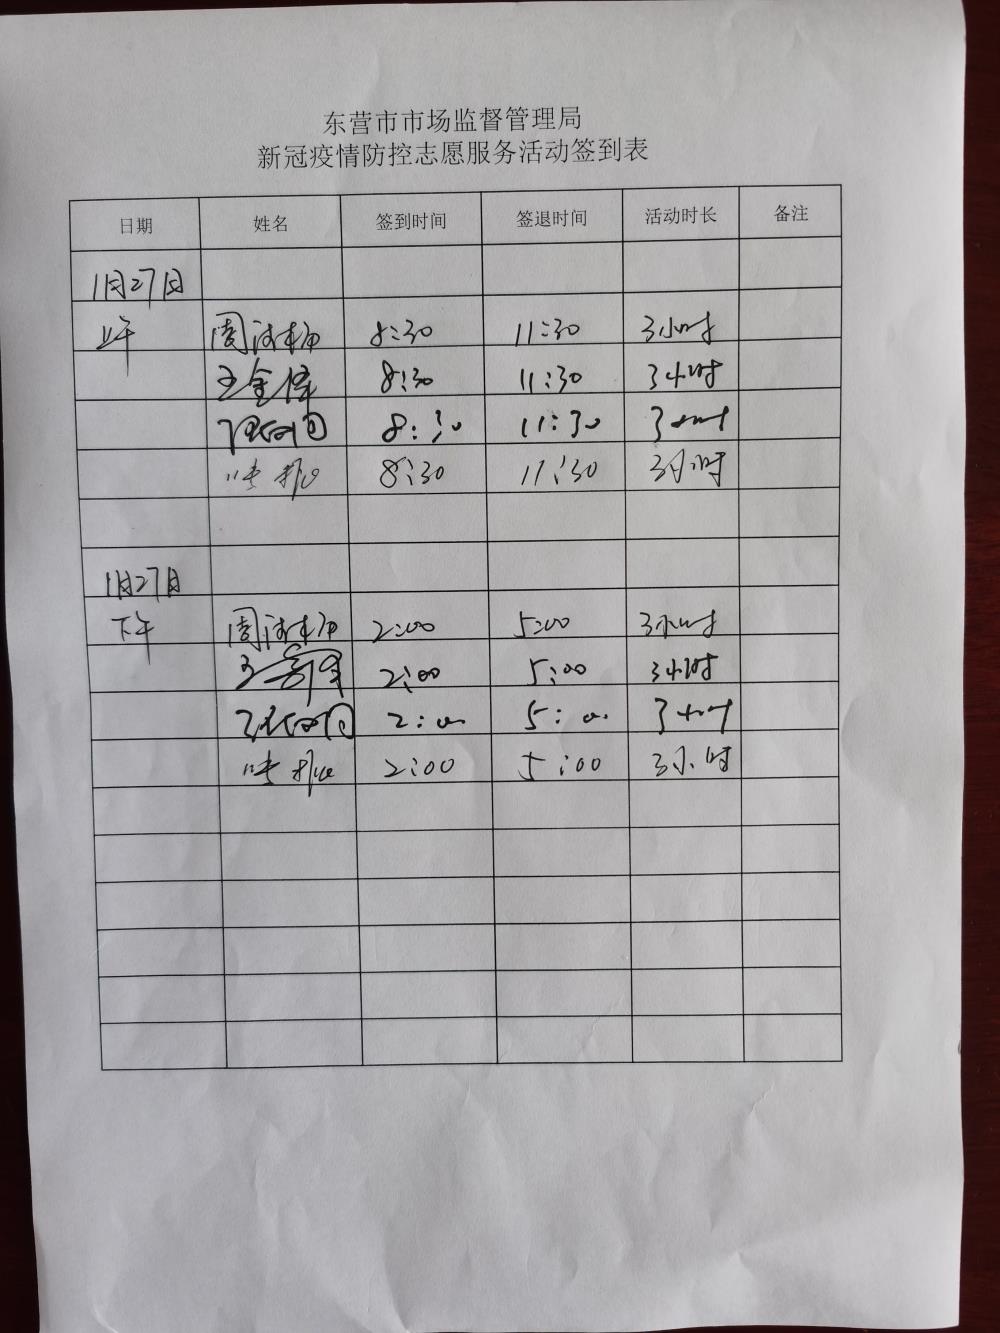 东营市市场监督管理局
新冠疫情防控志愿服务活动签到表
日期 姓名 签到时间 签退时间 活动时长 备注
1月27日
上午 周 8:30 11:30 3小时
王金 8:30 11:30 3小时
8:30 11:30 3小时
8:30 11:30 3小时
1月27日
下午 周 2:00 5:00 3小时
王 2:00 5:00 3小时
2:00 5:00 3小时
2:00 5:00 3小时